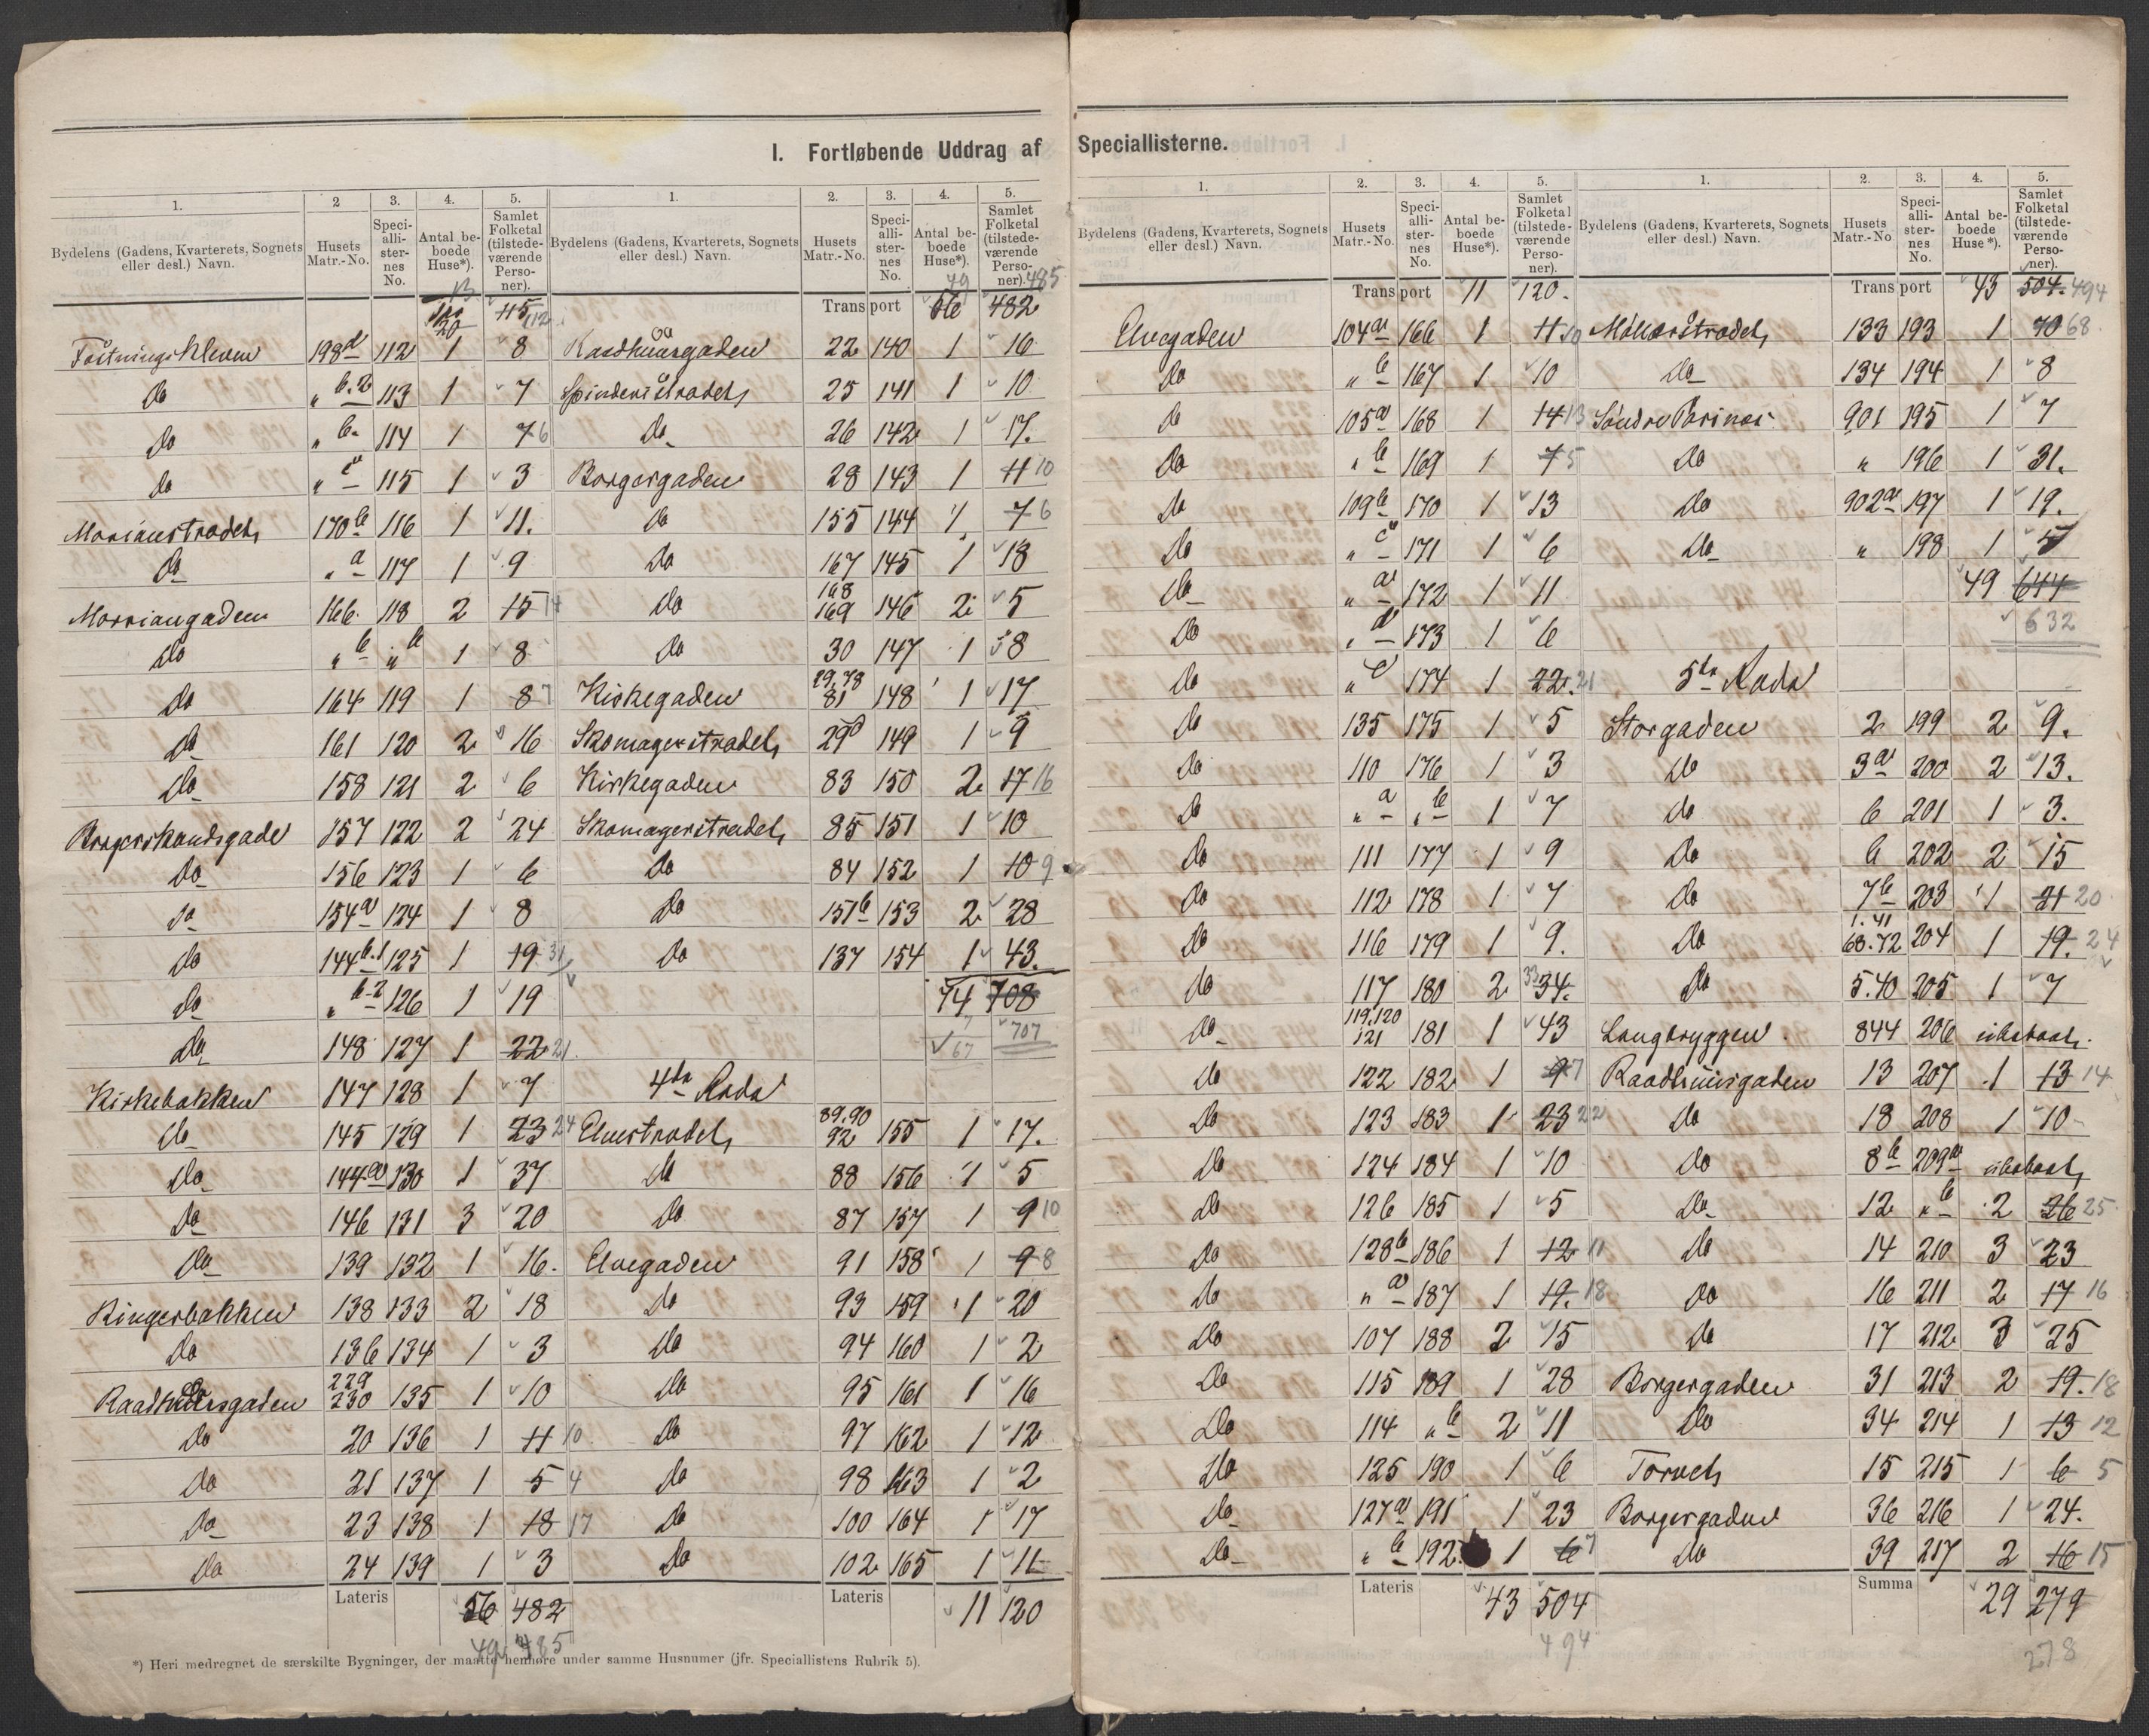 I. Fortløbende Uddrag af Speciallisterne.
1. 2 3. 4. 5. 1. 2. 3. 4. 5.
Bydelens (Gadens, Kvarterets, Sognets eller desl.) Navn. Husets Matr.-No. Speci-alli-ster-nes No. Antal be-boede Huse*). Samlet Folketal (tilstede-værende Perso-ner).
Bydelens (Gadens, Kvarterets, Sognets eller desl.) Navn. Husets Matr.-No. Speci-alli-ster-nes No. Antal be-boede Huse*). Samlet Folketal (tilstede-værende Perso-ner).
13 20 115 112
Fæstningskleven 198d 112 1 8
do " b.2 113 1 7
do " b. 114 1 7 6
do " c 115 1 3
Morianstrædet 170b 116 1 11.
do " a 117 1 9
Morriangaden 166. 118 2 15 14
do " b " b 1 8
do 164 119 1 8 7
do 161 120 2 16
do 158 121 2 6
Borgermandsgade 157 122 2 24
do 156 123 1 6
do 154a 124 1 8
do 144b.1 125 1 19 31
do " b-2 126 1 19
do 148 127 1 22 21.
Kirkebakken 147 128 1 7
do 145 129 1 23 24
do 144a 130 1 37
do 146 131 3 20
do 139 132 1 16.
Ringerbakken 138 133 2 18
do 136 134 1 3
Raadhusgaden 229 230 135 1 10
do 20 136 1 11 10
do 21 137 1 5 4
do 23 138 1 18 17
do 24 139 1 3
Lateris 56 482
49 485
Transport 56 482 49 485
Raadhusgaden 22 140 1 16
Spinderistrædet 25 141 1 10
do 26 142 1 17.
Borgergaden 28 143 1 11 10
do 155 144 1 7 6
do 167 145 1 18
do 168 169 146 2 5
do 30 147 1 8
Kirkegaden 29.78 81 148 1 17
Skomagerstrædet 29d 149 1 9
Kirkegaden 83 150 2 17 16
Skomagerstrædet 85 151 1 10
do 84 152 1 10 9
do 151b 153 2 28
do 137 154 1 43.
74 708
67 707
4de Rode
Elvestrædet 89.90 92 155 1 17.
do 88 156 1 5
do 87 157 1 9 10
Elvegaden 91 158 1 9 8
do 93 159 1 20
do 94 160 1 2
do 95 161 1 16
do 97 162 1 12
do 98 163 1 2
do 100 164 1 17
do 102 165 1 11
Lateris 11 120
*) Heri medregnet de særskilte Bygninger, der maatte henhøre under samme Husnumer (jfr. Speciallistens Rubrik 5).
1. 2. 3. 4. 5. 1. 2. 3. 4. 5.
Bydelens (Gadens, Kvarterets, Sognets eller desl.) Navn. Husets Matr.-No. Speci-alli-ster-nes No. Antal be-boede Huse*). Samlet Folketal (tilstede-værende Perso-ner).
Bydelens (Gadens, Kvarterets, Sognets eller desl.) Navn. Husets Matr.-No Speci-alli-ster-nes No. Antal be-boede Huse*). Samlet Folketal (tilstede-værende Perso-ner).
Transport 11 120.
Elvegaden 104a 166 1 11 10
do " b 167 1 10
do 105a 168 1 14 13
do " b 169 1 7 5
do 109b 170 1 13
do " c 171 1 6
do " a 172 1 11
do " d 173 1 6
do " e 174 1 22. 21
do 135 175 1 5
do 110 176 1 3
do " a " b 1 7
do 111 177 1 9
do 112 178 1 7
do 116 179 1 9.
do 117 180 2 33 34.
do 119.120 121 181 1 43
do 122 182 1 9 7
do 123 183 1 23 22
do 124 184 1 10
do 126 185 1 5
do 128b 186 1 12 11
do " a 187 1 19. 18
do 107 188 2 15
do 115 189 1 28
do 114 " b 2 11
do 125 190 1 6
do 127a 191 1 23
do " b 192 1 6 7
Lateris 43 504
494
Transport 43 504. 494
Møllerstrædet 133 193 1 70 68.
do 134 194 1 8
Søndre Porsnes 901 195 1 7
do " 196 1 31.
do 902a 197 1 19.
do " 198 1 5
49 644
632
5te Rode
Storgaden 2 199 2 9.
do 3a 200 2 13.
do 6 201 1 3.
do 6 202 2 15
do 7b 203 1 21 20
do 1.41 68.72 204 1 19. 24
do 5.40 205 1 7
Langbryggen 844 206 ubeboet.
Raadhusgaden 13 207 1 13 14
do 18 208 1 10
do 8b 209a ubeboet
do 12 " b 2 26 25
do 14 210 3 23
do 16 211 2 17 16
do 17 212 3 25
Borgergaden 31 213 2 19. 18
do 34 214 1 13 12
Torvet 15 215 1 6 5
Borgergaden 36 216 1 24.
do 39 217 2 16 15
Summa 29 279
278